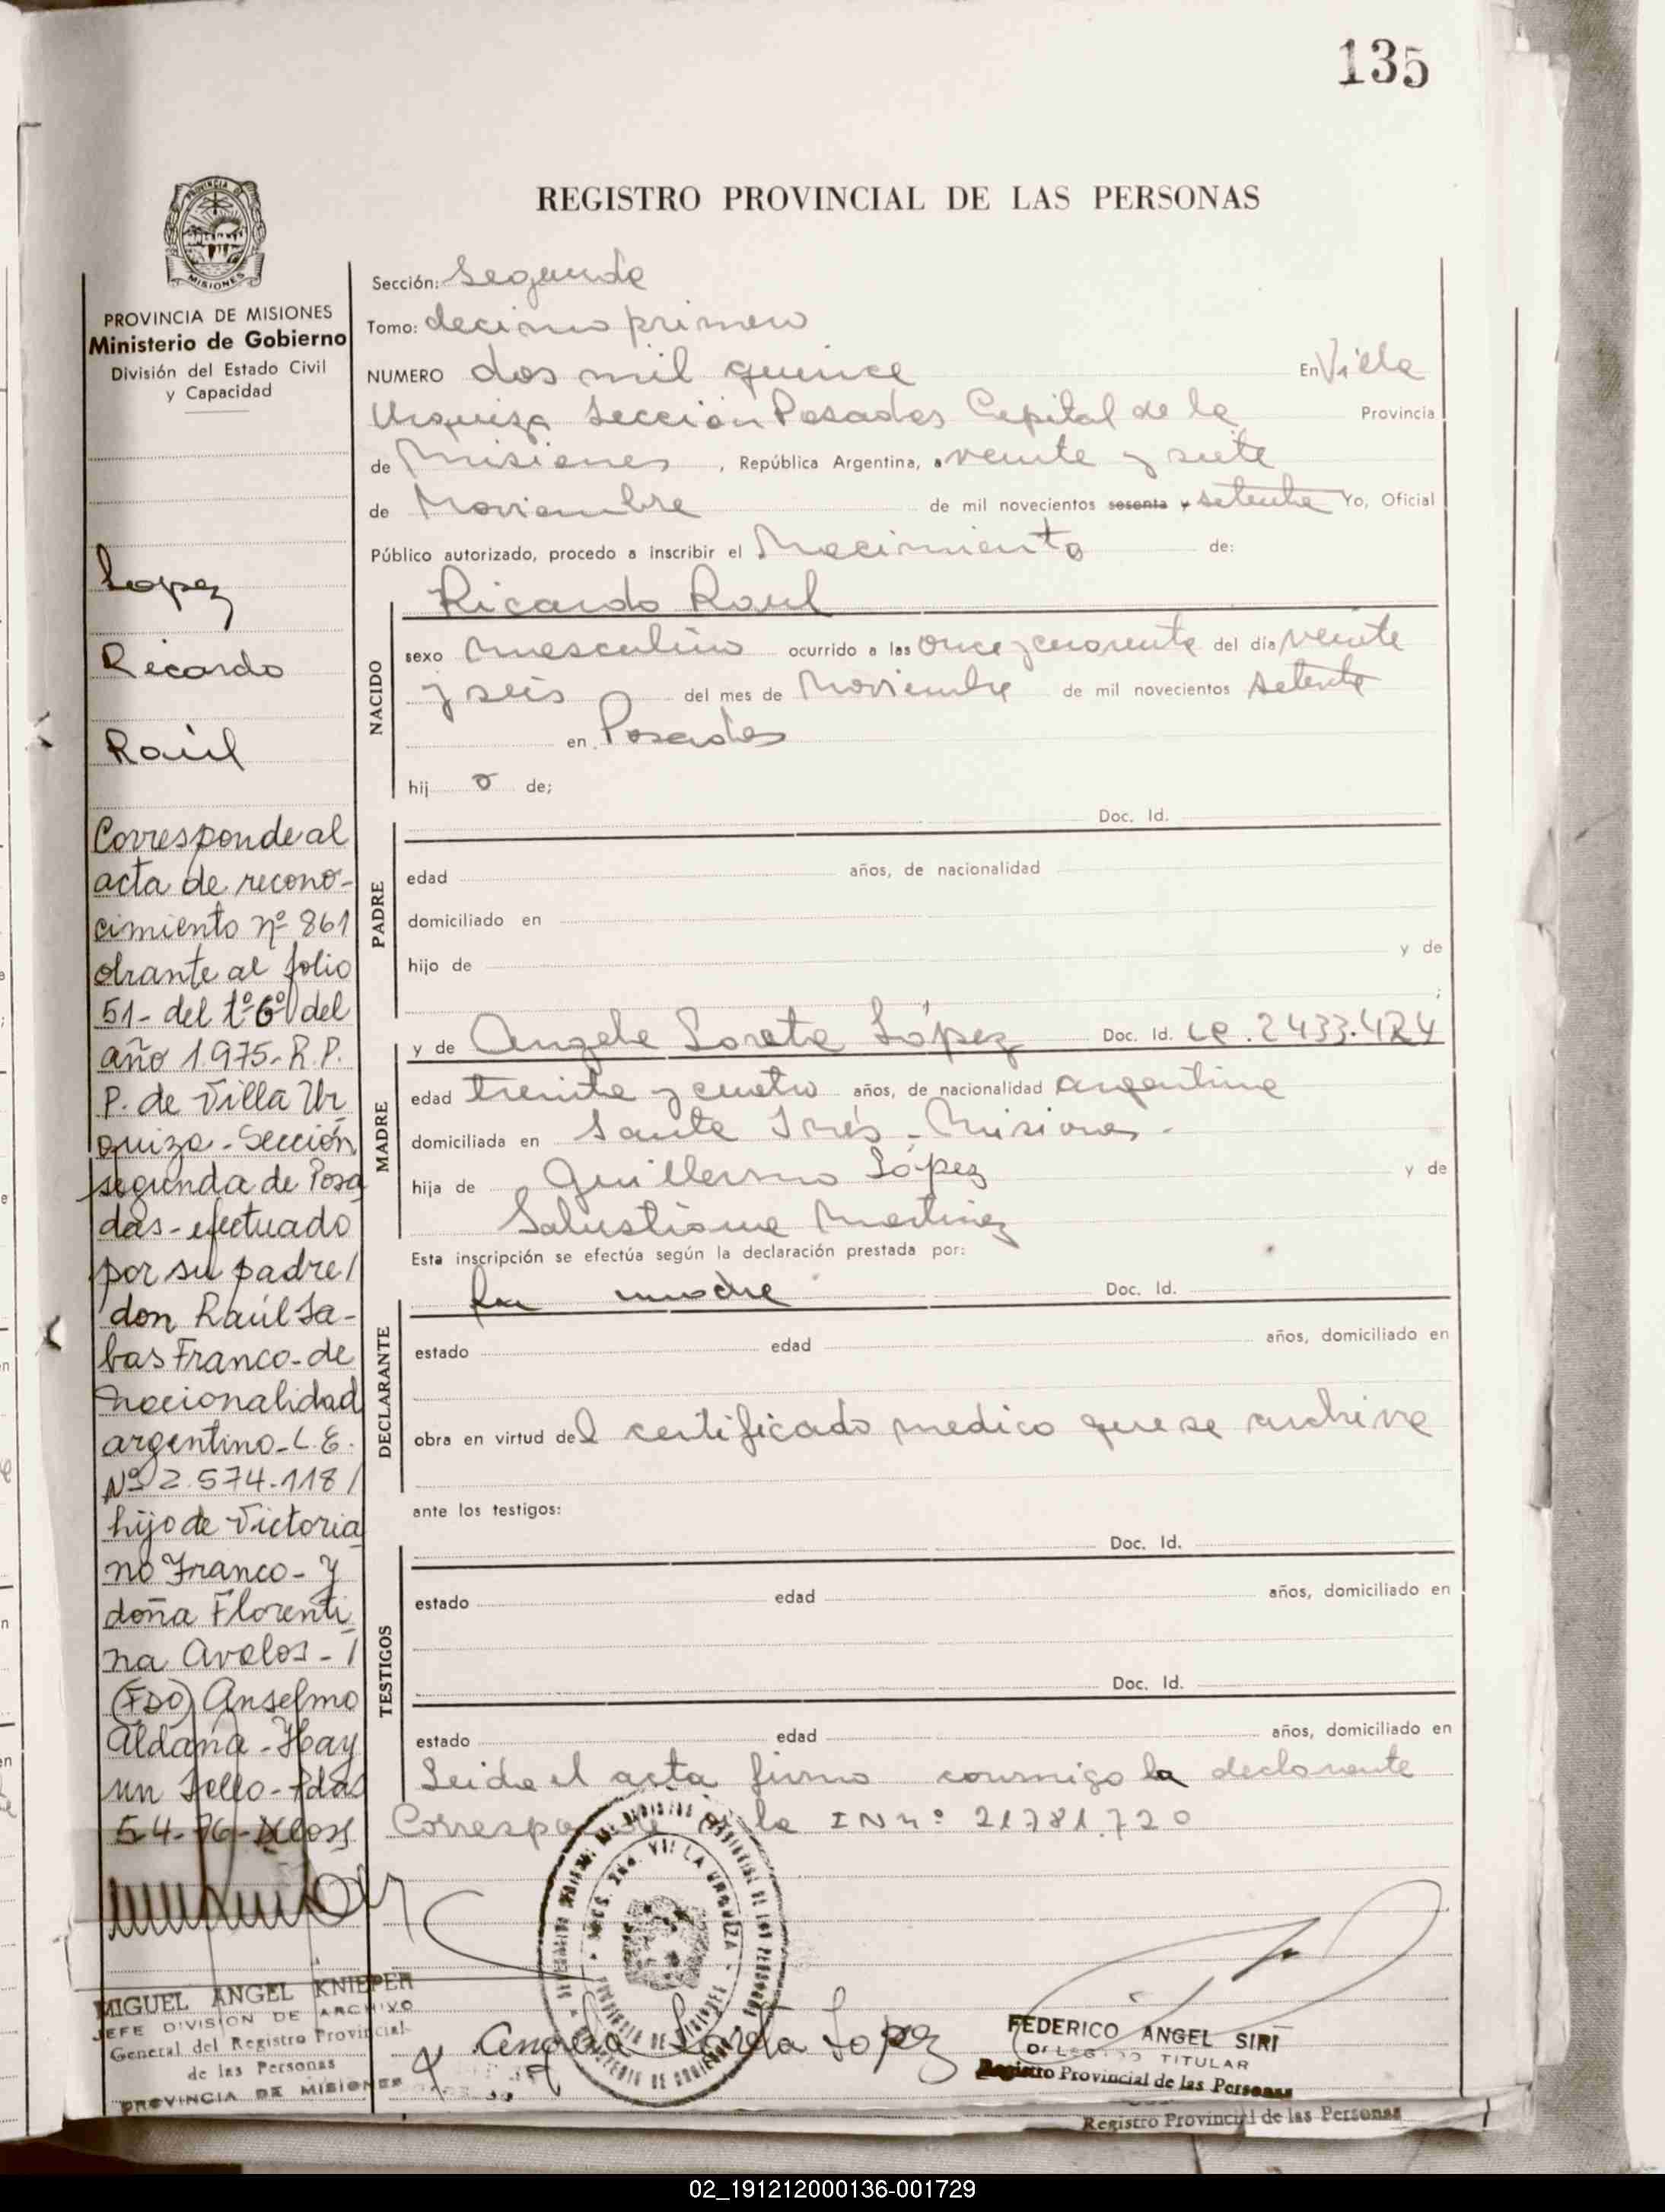 135
REGISTRO PROVINCIAL DE LAS PERSONAS
PROVINCIA DE MISIONES
Ministerio de Gobierno
División del Estado Civil
y Capacidad
Lopez
Ricardo
Raúl
Corresponde al
acta de recono-
cimiento nº 861
obrante al folio
51- del tº 6º del
año 1.975- R.P.
P. de Villa Ur
quiza - Sección
segunda de Posa
das - efectuado
por su padre/
don Raúl Sa-
bas Franco - de
nacionalidad
argentino - L.E.
Nº 2.574.118/
hijo de Victoria
no Franco - Y
doña Florenti
na Avalos - /
(FDO) Anselmo
Aldana - Hay
un Sello - Pdas
5-4-76-
MIGUEL ANGEL KNIEPER
JEFE DIVISION DE ARCHIVO
General del Registro Provincial
de las Personas
PROVINCIA DE MISIONES
Sección: Segunda
Tomo: decimo primero
NUMERO dos mil quince En Villa
Urquiza Sección Posadas Capital de la Provincia
de Misiones, República Argentina, a veinte y siete
de Noviembre de mil novecientos sesenta y setenta Yo, Oficial
Público autorizado, procedo a inscribir el Nacimiento de:
Ricardo Raul
NACIDO
sexo masculino ocurrido a las once y cuarenta del día veinte
y seis del mes de Noviembre de mil novecientos setenta
en Posadas
hij o de;
PADRE
Doc. Id.
edad años, de nacionalidad
domiciliado en
hijo de y de
;
MADRE
y de Angela Loreta López Doc. Id. LC. 2433.424
edad treinta y cuatro años, de nacionalidad argentina
domiciliada en Santa Inés - Misiones -
hija de Guillermo López y de
Salustiana Martinez
Esta inscripción se efectúa según la declaración prestada por:
DECLARANTE
La madre Doc. Id.
estado edad años, domiciliado en
obra en virtud del certificado medico que se archiva
ante los testigos:
TESTIGOS
Doc. Id.
estado edad años, domiciliado en
Doc. Id.
estado edad años, domiciliado en
Leida el acta firma conmigo la declarante
Corresponde a la IN nº 21781.720
SECC. 2da. VILLA URQUIZA
PROVINCIA DE MISIONES
Angela Loreta Lopez
FEDERICO ANGEL SIRI
DELEGADO TITULAR
Registro Provincial de las Personas
Registro Provincial de las Personas
02_191212000136-001729